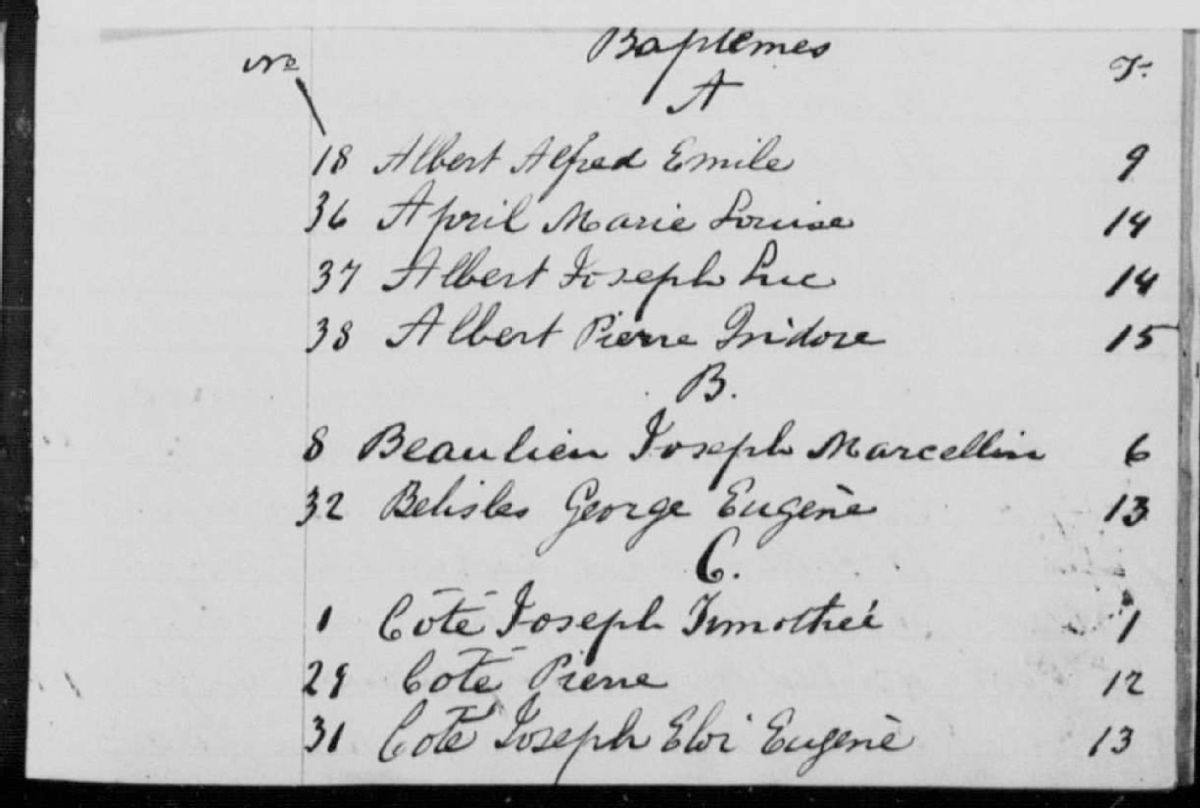 Baptemes
No F.
A
18 Albert Alfred Emile 9
36 April Marie Louise 14
37 Albert Joseph Luc 14
38 Albert Pierre Isidore 15
B.
8 Beaulieu Joseph Marcellin 6
32 Belisles George Eugène 13
C.
1 Côté Joseph Timothée 1
29 Coté Pierre 12
31 Coté Joseph Eloi Eugène 13